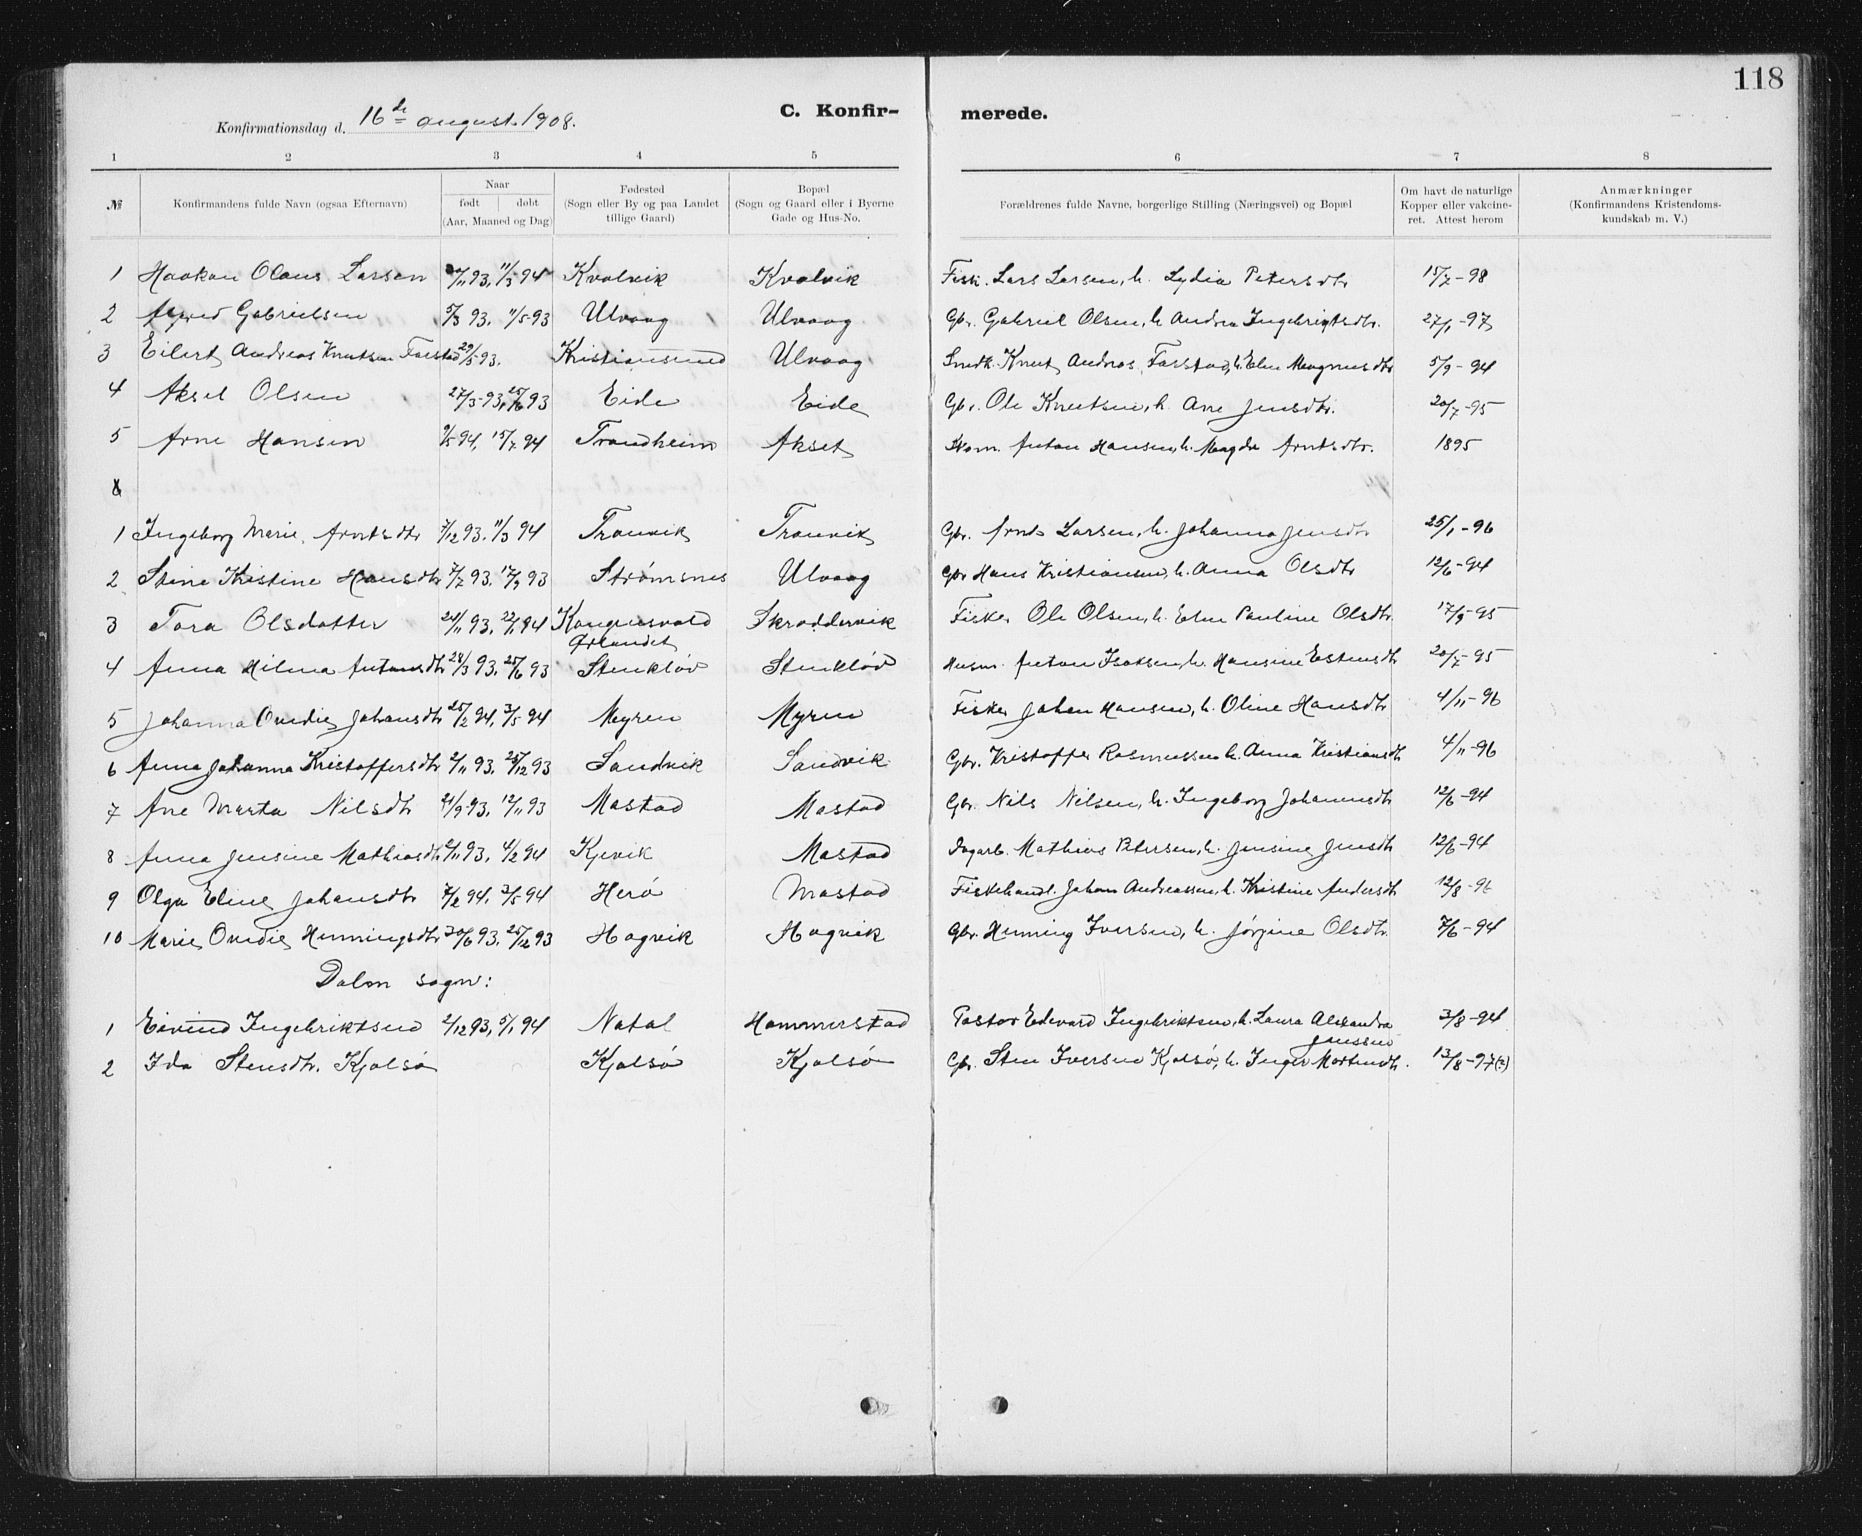 118
C. Konfir- merede.
Konfirmationsdag d. 16de august 1908.
1 2 3 4 5 6 7 8
№
Konfirmandens fulde Navn (ogsaa Efternavn)
Naar
født døbt
(Aar, Maaned og Dag)
Fødested
(Sogn eller By og paa Landet
tillige Gaard)
Bopæl
(Sogn og Gaard eller i Byerne
Gade og Hus-No.
Forældrenes fulde Navne, borgerlige Stilling (Næringsvei) og Bopæl
Om havt de naturlige
Kopper eller vakcine-
ret. Attest herom
Anmærkninger
(Konfirmandens Kristendoms-
kundskab m. V.)
1 Haakon Olaus Larsen /11 93, 11/3 94 Kvalvik Kvalvik Fisk. Lars Larsen, h. Lydia Petersdtr 15/7-98
2 Alfred Gabrielsen 5/3 93, 11/5-93 Ulvaag Ulvaag Gbr. Gabriel Olsen, h. Andrea Ingebrigtsdtr. 27/1-97
3 Eilert Andreas Knutsen Farstad 29/5-93. Kristiansund Ulvaag Snedk. Knut Andreas Farstad, h. Elen Magnusdtr 5/9-94
4 Aksel Olsen 27/3-93, 25/6 93 Eide Eide Gbr. Ole Knutsen, h. Ane Jensdtr. 20/7-95
5 Arne Hansen /5 94, 15/7 94 Trondheim Akset Anton Hansen, h. Magda Arntsdtr. 1895
1 Ingeborg Marie Arntsdtr 7/12 93. 11/3 94 Tranvik Tranvik Gbr. Arnt Larsen, h. Johanna Jensdtr 25/1-96
2 Stine Kristine Hansdtr 7/7 93. 17/9 93 Strømsnes Ulvaag Gbr Hans Kristiansen, h. Anna Olsdtr 12/6-94
3 Tora Olsdatter 24/11 93, 22/1 94 Kongensvold Skraddervik Fisker Ole Olsen, h. Elen Pauline Olsdtr 17/9-95
Ørlandet
4 Anna Hilma Antonsdtr 28/3 93. 25/6 93 Stenkløv Stenkløv Husm. Anton Isaksen, h. Hansine Estensdtr 20/7-95
5 Johanna Ovedie Johansdtr 25/2 94, 3/5 94 Myren Myren Fisker Johan Hansen, h. Oline Hansdtr 4/11-96
6 Anna Johanna Kristoffersdtr 2/11 93. 25/12 93 Sandvik Sandvik Gbr. Kristoffer Rasmussen h. Anna Kristiansdtr 4/11-96
7 Ane Marta Nilsdtr 21/9 93, 12/11 93 Mastad Mastad Gbr. Nils Nilsen, h. Ingeborg Johannesdtr 12/6-94
8 Anna Jensine Mathiasdtr /11 93, 4/2 94 Kjevik Mastad Dagarb. Mathias Petersen, h. Jensine Jensdtr 12/6-94
9 Olga Eline Johansdtr 7/2 94. 3/5 94 Herø Mastad Fiskehandl. Johan Andreassen, h. Kristine Andersdtr 12/8-96
10 Marie Ovedie Henningsdtr 30/6 93. 25/12 93 Hagvik Hagvik Gbr. Henning Iversen, h. Jørgine Olsdtr. 7/6-94
Dolm sogn:
1 Eivind Ingebriktsen 2/12 93, 5/1 94 Natal Hammerstad Pastor Edevard Ingebriktsen, h. Laura Alexandra 3/8-94
Janssen
2 Ida Stensdtr. Kjølsø Kjølsø Kjølsø Gbr. Sten Iversen Kjølsø, h. Inger Mortensdtr. 13/8-97(?)